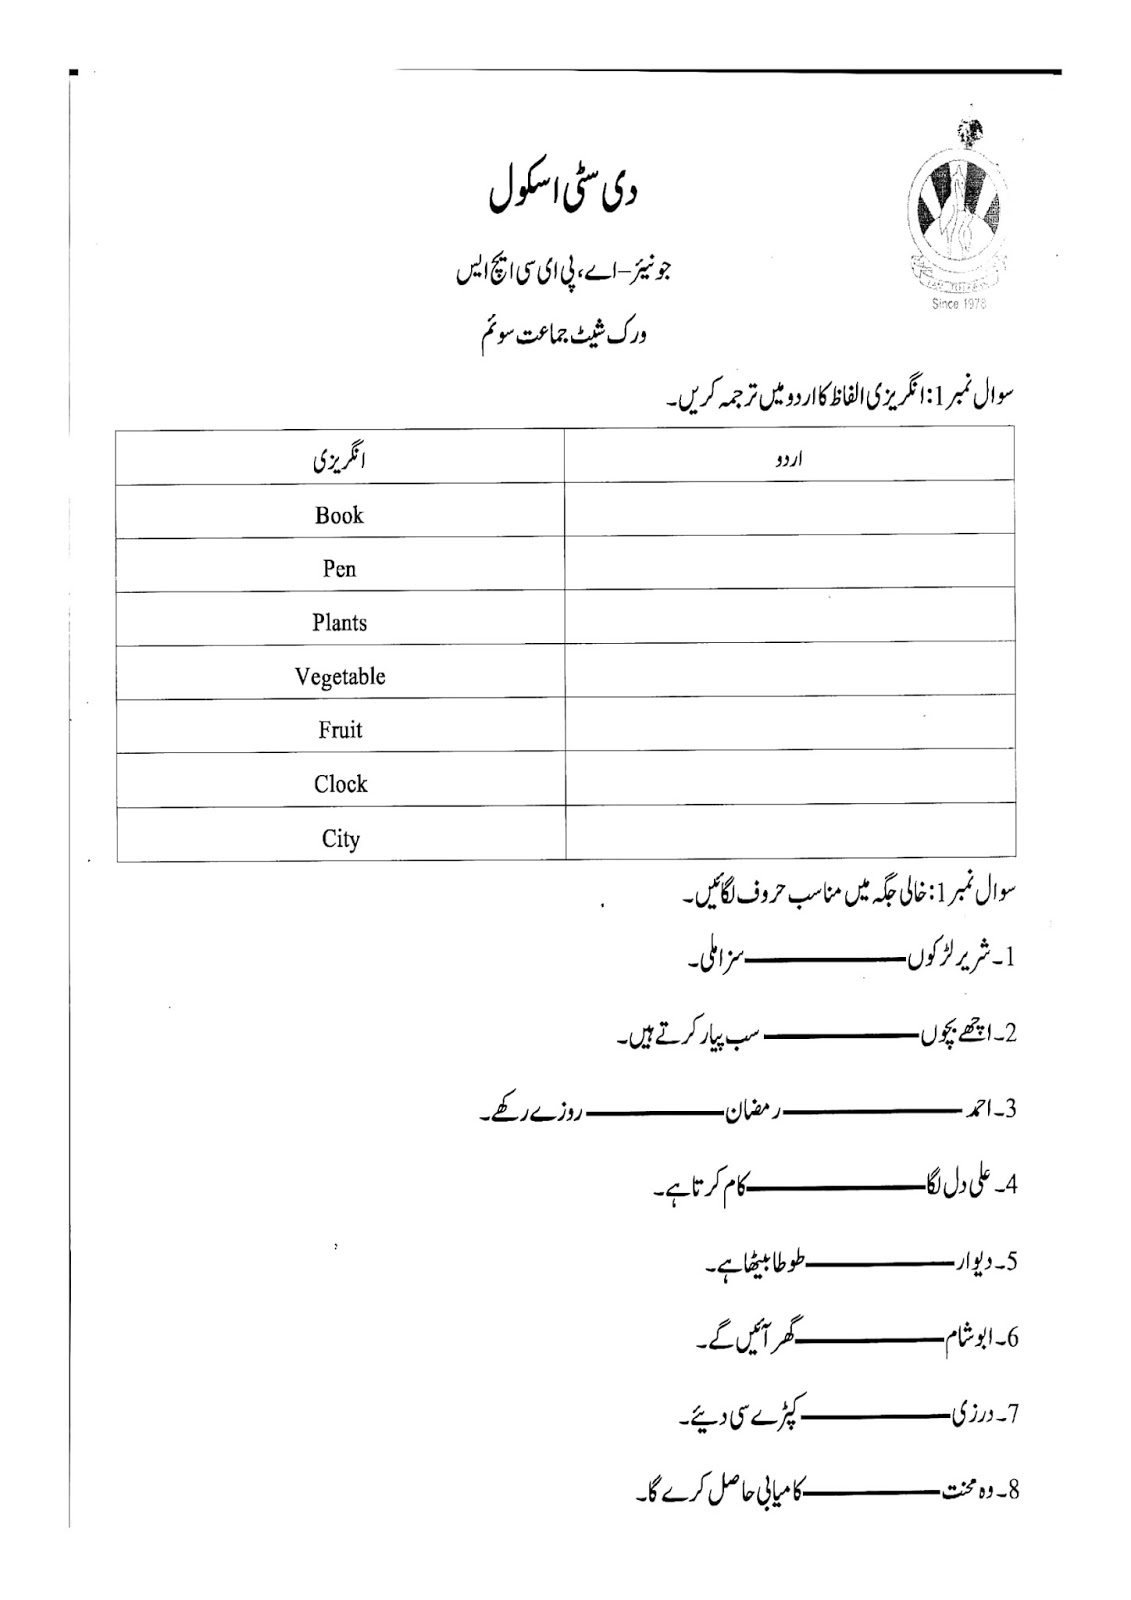 دی سٹی اسکول
جونیئر-اے، پی ای سی ایچ ایس
Since 1978
ورک شیٹ جماعت سوئم
سوال نمبر 1: انگریزی الفاظ کا اردو میں ترجمہ کریں۔
اردو انگریزی
Book
Pen
Plants
Vegetable
Fruit
Clock
City
سوال نمبر 1: خالی جگہ میں مناسب حروف لگائیں۔
1۔ شریر لڑکوں ________ سزا ملی۔
2۔ اچھے بچوں ________ سب پیار کرتے ہیں۔
3۔ احمد ________ رمضان ________ روزے رکھے۔
4۔ علی دل لگا ________ کام کرتا ہے۔
5۔ دیوار ________ طوطا بیٹھا ہے۔
6۔ ابو شام ________ گھر آئیں گے۔
7۔ درزی ________ کپڑے سی دیئے۔
8۔ وہ محنت ________ کامیابی حاصل کرے گا۔